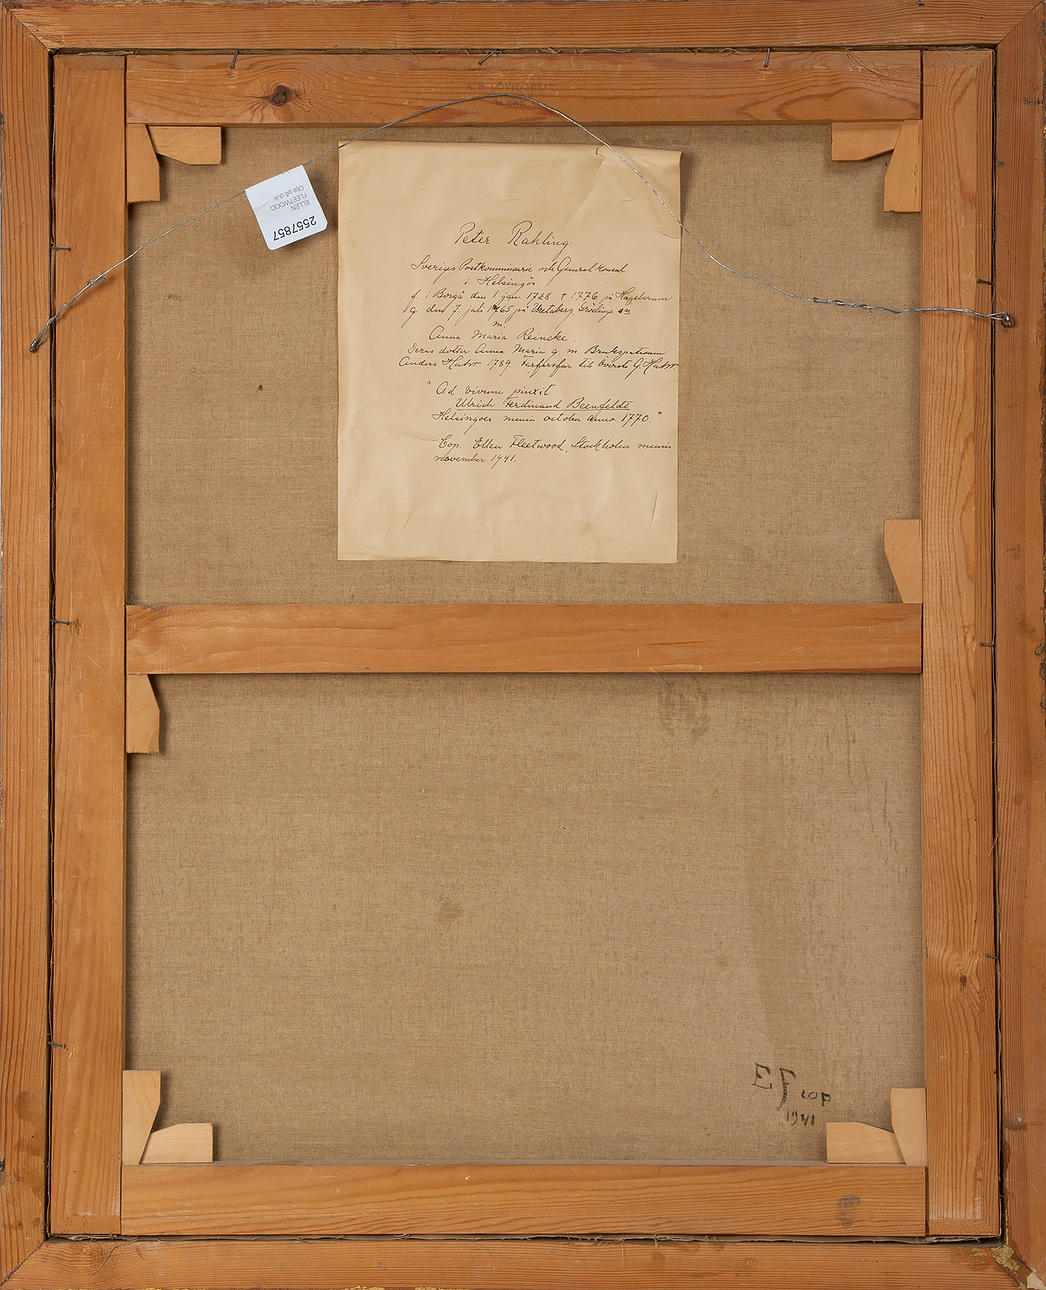 2557857
ELLEN
FLEETWOOD
Olja på duk
Peter Rahling
Sveriges Postkommissarie och General Konsul
i Helsingör
f. i Borgå den 1 jan 1728 † 1776 på Hagelsrum
g. den 7. juli 1765 på
m.
Anna Maria Reincke.
Deras dotter Anna Maria g. m. Brukspatronen
Anders 1789. Farfarsfar till Överste G.
"Ad vivum pinxit
Ulrich Ferdinand Beenfeldt
Helsingoer mensis october anno 1770."
Cop. Ellen Fleetwood, Stockholm mensis
november 1941.
EF cop
1941